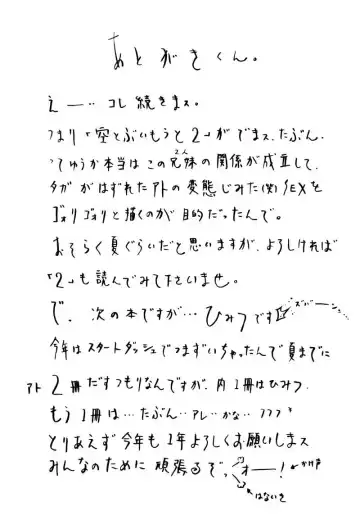 あとがきくん。
え—‥ コレ続きまス。
つまり「空とぶいもうと2」が でまス、たぶん、
つてゆうか本当は この兄妹の関係が成立して、
タガ がはずれた アトの変態じみた(笑)SEXを
ゴリゴリと描くのが 目的だったんで。
おそらく夏ぐらいだと思いますが、よろしければ
「2」も読んでみて下さいませ。
で、次の本ですが… ひみつです
ズバーン
今年はスタートダッシュでつまずいちゃったんで夏までに
アト 2冊 だすつもりなんですが、内 1冊はひみつ。
もう1冊は…たぶん‥アレ…かな‥フフフ
とりあえず 今年も 1年よろしくお願いしまス
みんなのために 頑張るぞっ オ—!
かけ声
はないき